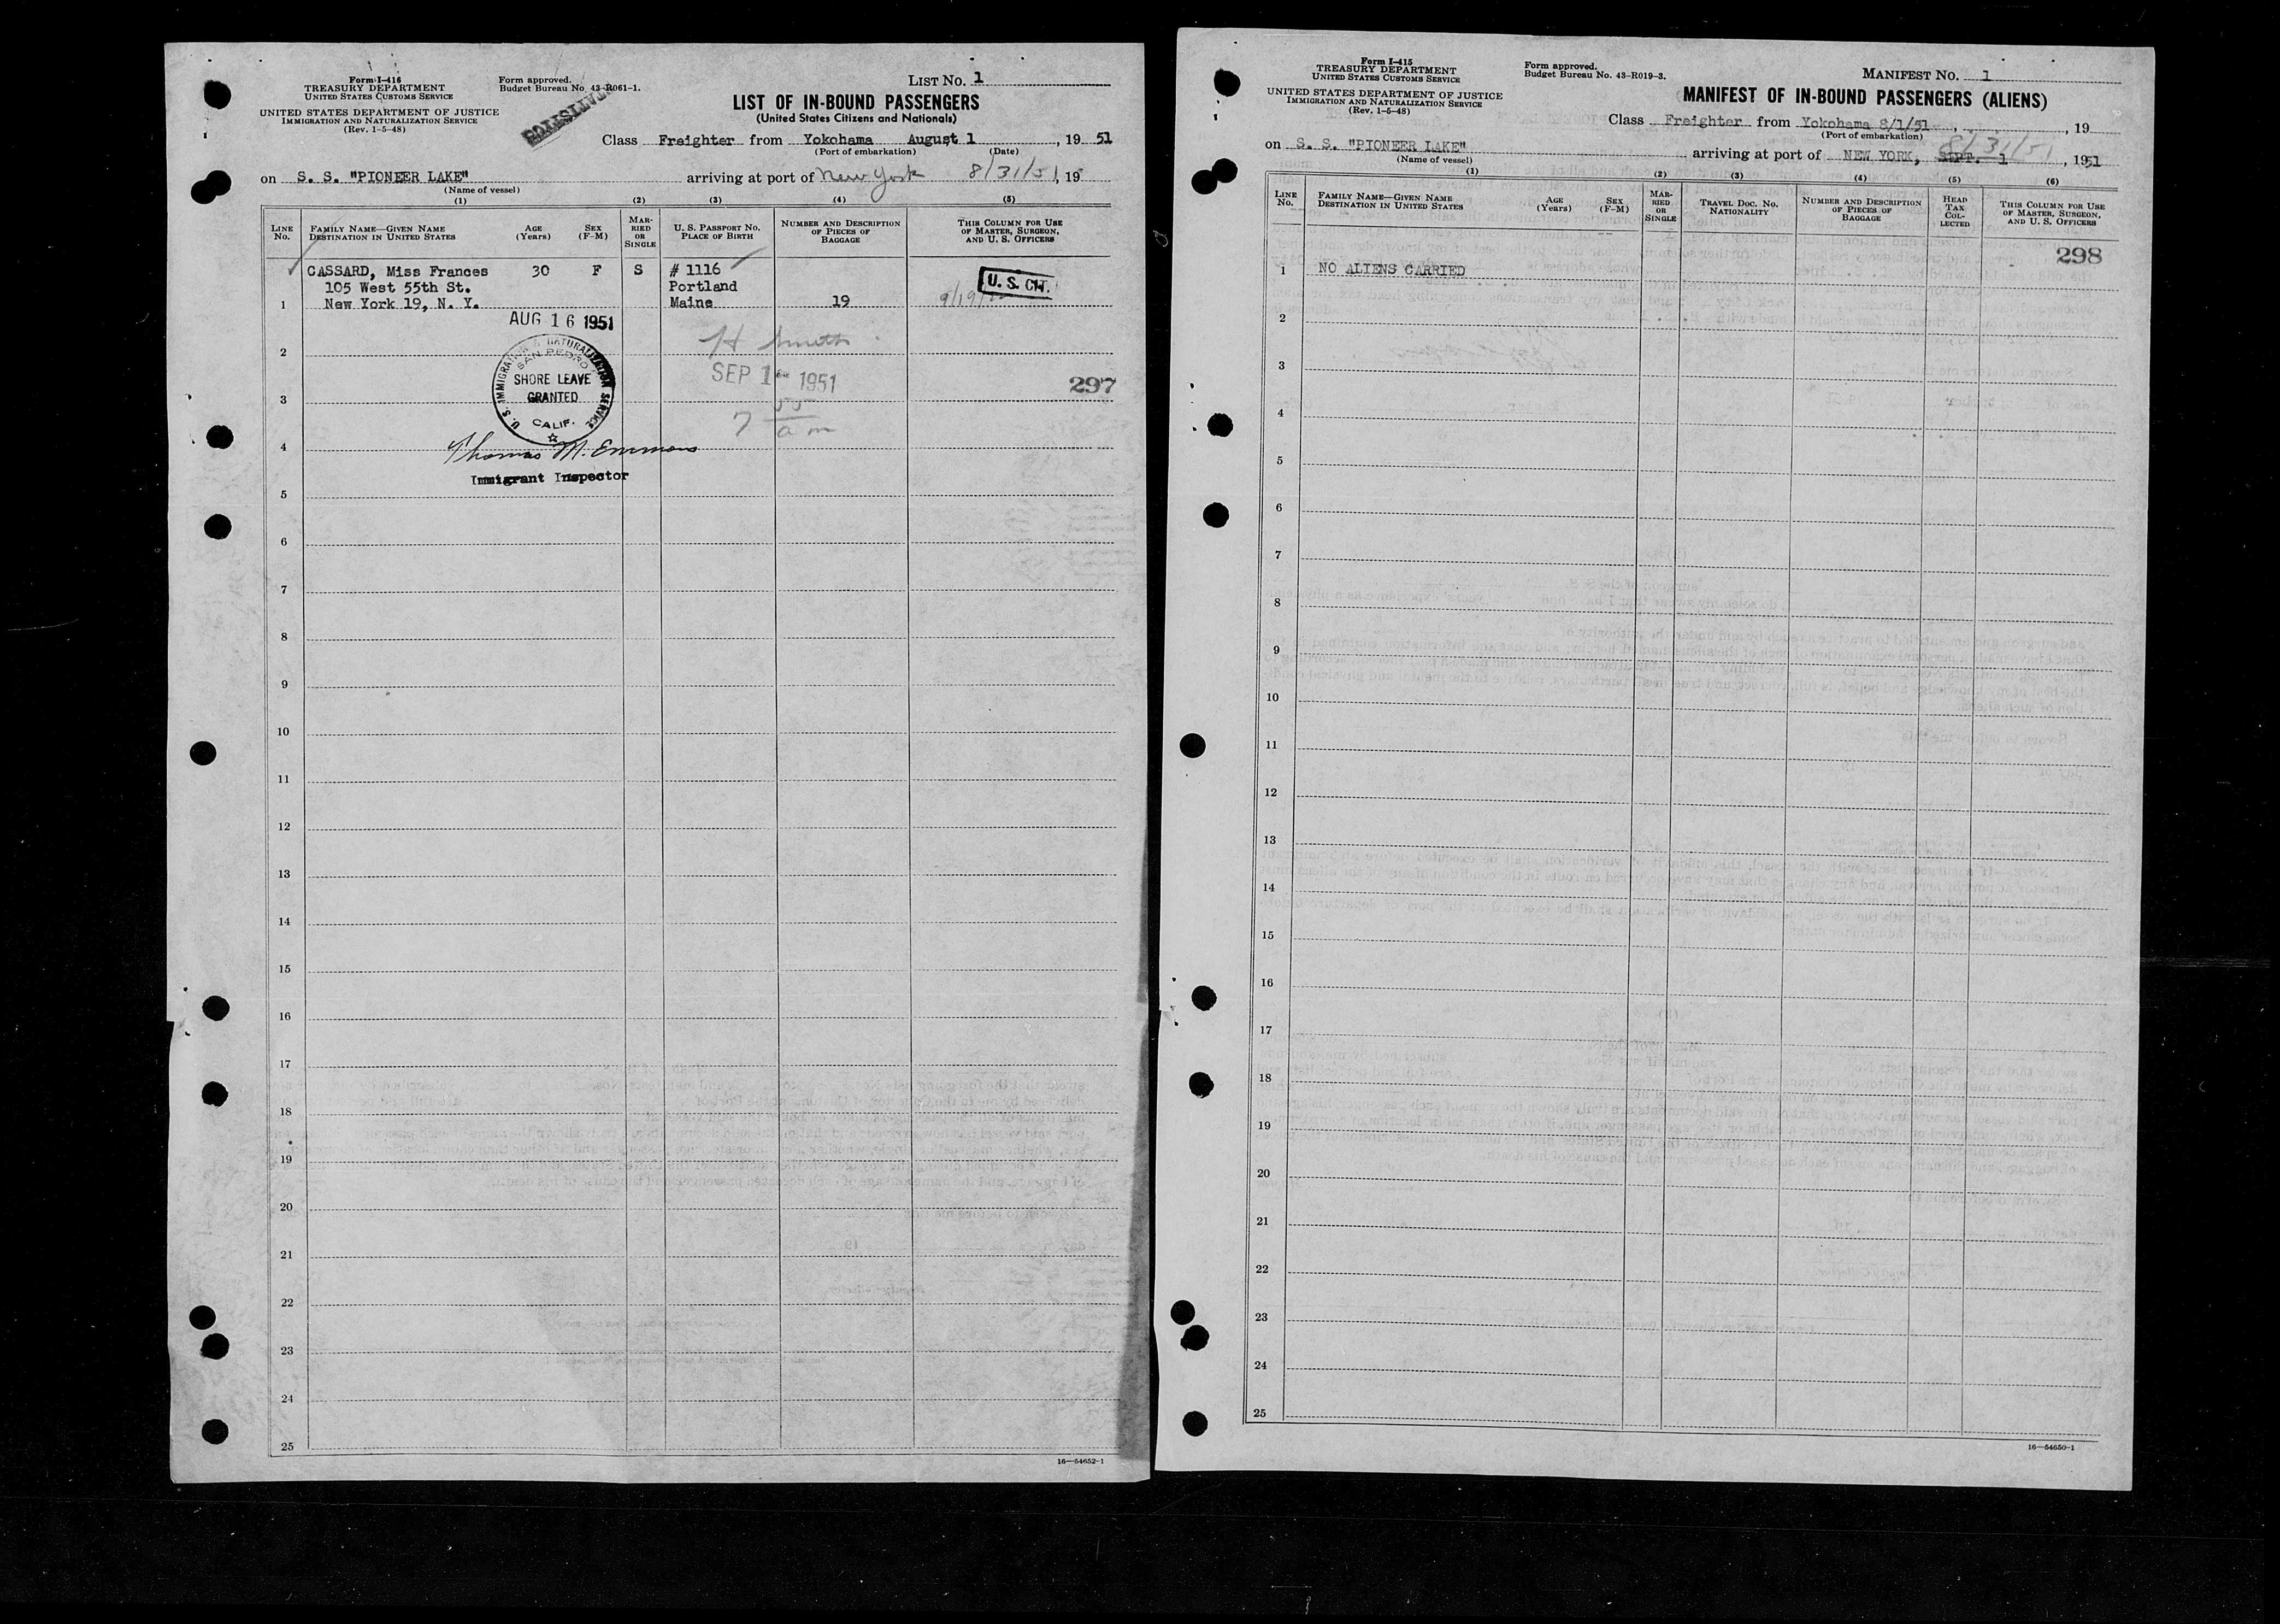 Form I-416
TREASURY DEPARTMENT
UNITED STATES CUSTOMS SERVICE
UNITED STATES DEPARTMENT OF JUSTICE
IMMIGRATION AND NATURALIZATION SERVICE
(Rev. 1-5-48)
Form approved.
Budget Bureau No. 43-R061-1.
LIST NO. 1
LIST OF IN-BOUND PASSENGERS
(United States Citizens and Nationals)
Class Freighter from Yokohama August 1, 19 51
(Port of embarkation) (Date)
on S. S. "PIONEER LAKE" arriving at port of New York 8/31/51, 19
(Name of vessel)
(1) (2) (3) (4) (5)
LINE NO. FAMILY NAME—GIVEN NAME DESTINATION IN UNITED STATES AGE (Years) SEX (F-M) MARRIED OR SINGLE U. S. PASSPORT NO. PLACE OF BIRTH NUMBER AND DESCRIPTION OF PIECES OF BAGGAGE THIS COLUMN FOR USE OF MASTER, SURGEON, AND U. S. OFFICERS
CASSARD, Miss Frances 30 F S # 1116
105 West 55th St. Portland
1 New York 19, N. Y. Maine 19
U. S. CIT.
AUG 16 1951
U. S. IMMIGRATION & NATURALIZATION SERVICE
SAN PEDRO
SHORE LEAVE
GRANTED
CALIF.
H Smith
SEP 1 1951
7 55
a m
297
Thomas M. Emmons
Immigrant Inspector
2
3
4
5
6
7
8
9
10
11
12
13
14
15
16
17
18
19
20
21
22
23
24
25
16—54652-1
Form I-415
TREASURY DEPARTMENT
UNITED STATES CUSTOMS SERVICE
UNITED STATES DEPARTMENT OF JUSTICE
IMMIGRATION AND NATURALIZATION SERVICE
(Rev. 1-5-48)
Form approved.
Budget Bureau No. 43-R019-3.
MANIFEST NO. 1
MANIFEST OF IN-BOUND PASSENGERS (ALIENS)
Class Freighter from Yokohama 8/1/51, 19
(Port of embarkation)
8/31/51
on S. S. "PIONEER LAKE" arriving at port of NEW YORK, SEPT. 1, 1951
(Name of vessel)
(1) (2) (3) (4) (5) (6)
LINE NO. FAMILY NAME—GIVEN NAME DESTINATION IN UNITED STATES AGE (Years) SEX (F-M) MARRIED OR SINGLE TRAVEL DOC. NO. NATIONALITY NUMBER AND DESCRIPTION OF PIECES OF BAGGAGE HEAD TAX COLLECTED THIS COLUMN FOR USE OF MASTER, SURGEON, AND U. S. OFFICERS
298
1 NO ALIENS CARRIED
2
3
4
5
6
7
8
9
10
11
12
13
14
15
16
17
18
19
20
21
22
23
24
25
16—54650-1